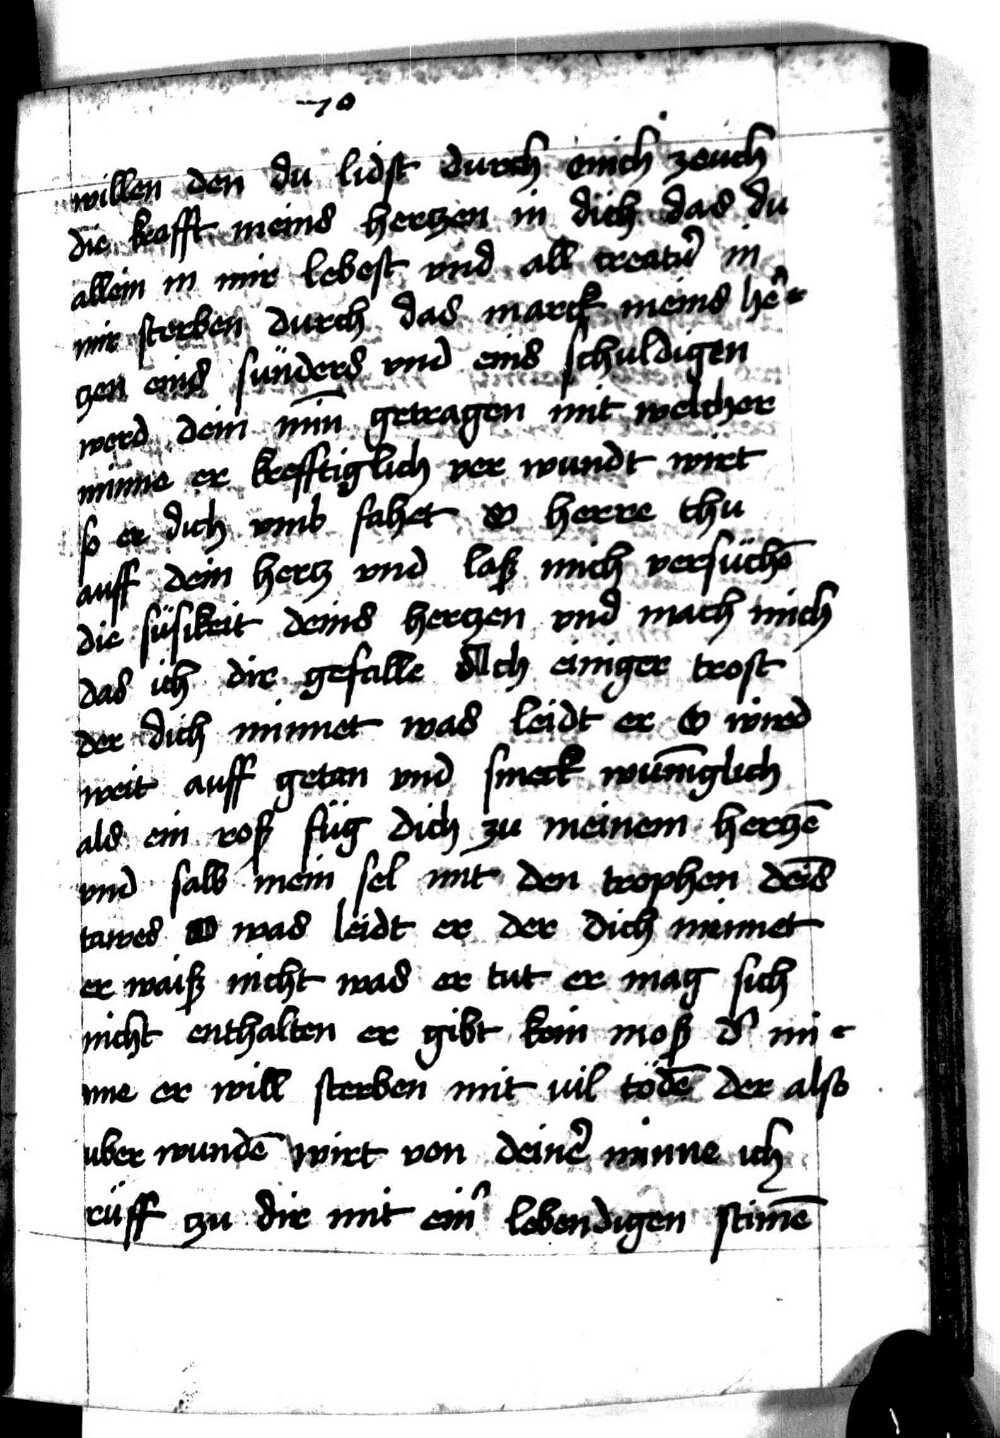 70
willen den du lidst durch mich zeuch
die krafft meins hertzen in dich das du
allein in mir lebest vnd all creatur̉ in
mir sterben durch das marck meins he᷒r-
tzen eins sünders vnd eins schuldigen
werd dein min̄ getragen mit welcher
minne er krefftiglich ver wundt wirt
so er dich vmb fahet O herre thu
auff dein hertz vnd laß mich versüchē
die süsikeit deins hertzen vnd mach mich
das ich dir gefalle Ach einiger trost
der dich minnet was leidt er O wird
weit auff getan vnd smeck wün̄iglich
als ein roß füg dich zu meinem hertzē
vnd salb mein sel mit den trophen deīs
tawes O was leidt er der dich minnet
er waiß nicht was er tut er mag sich
nicht enthalten er gibt kein moß d᷒ mi-
nne er will sterben mit uil tödē der also
uber wundē wirt von deine᷒ minne ich
rüff tzu dir mit ein᷒ lebendigen stim̄ē